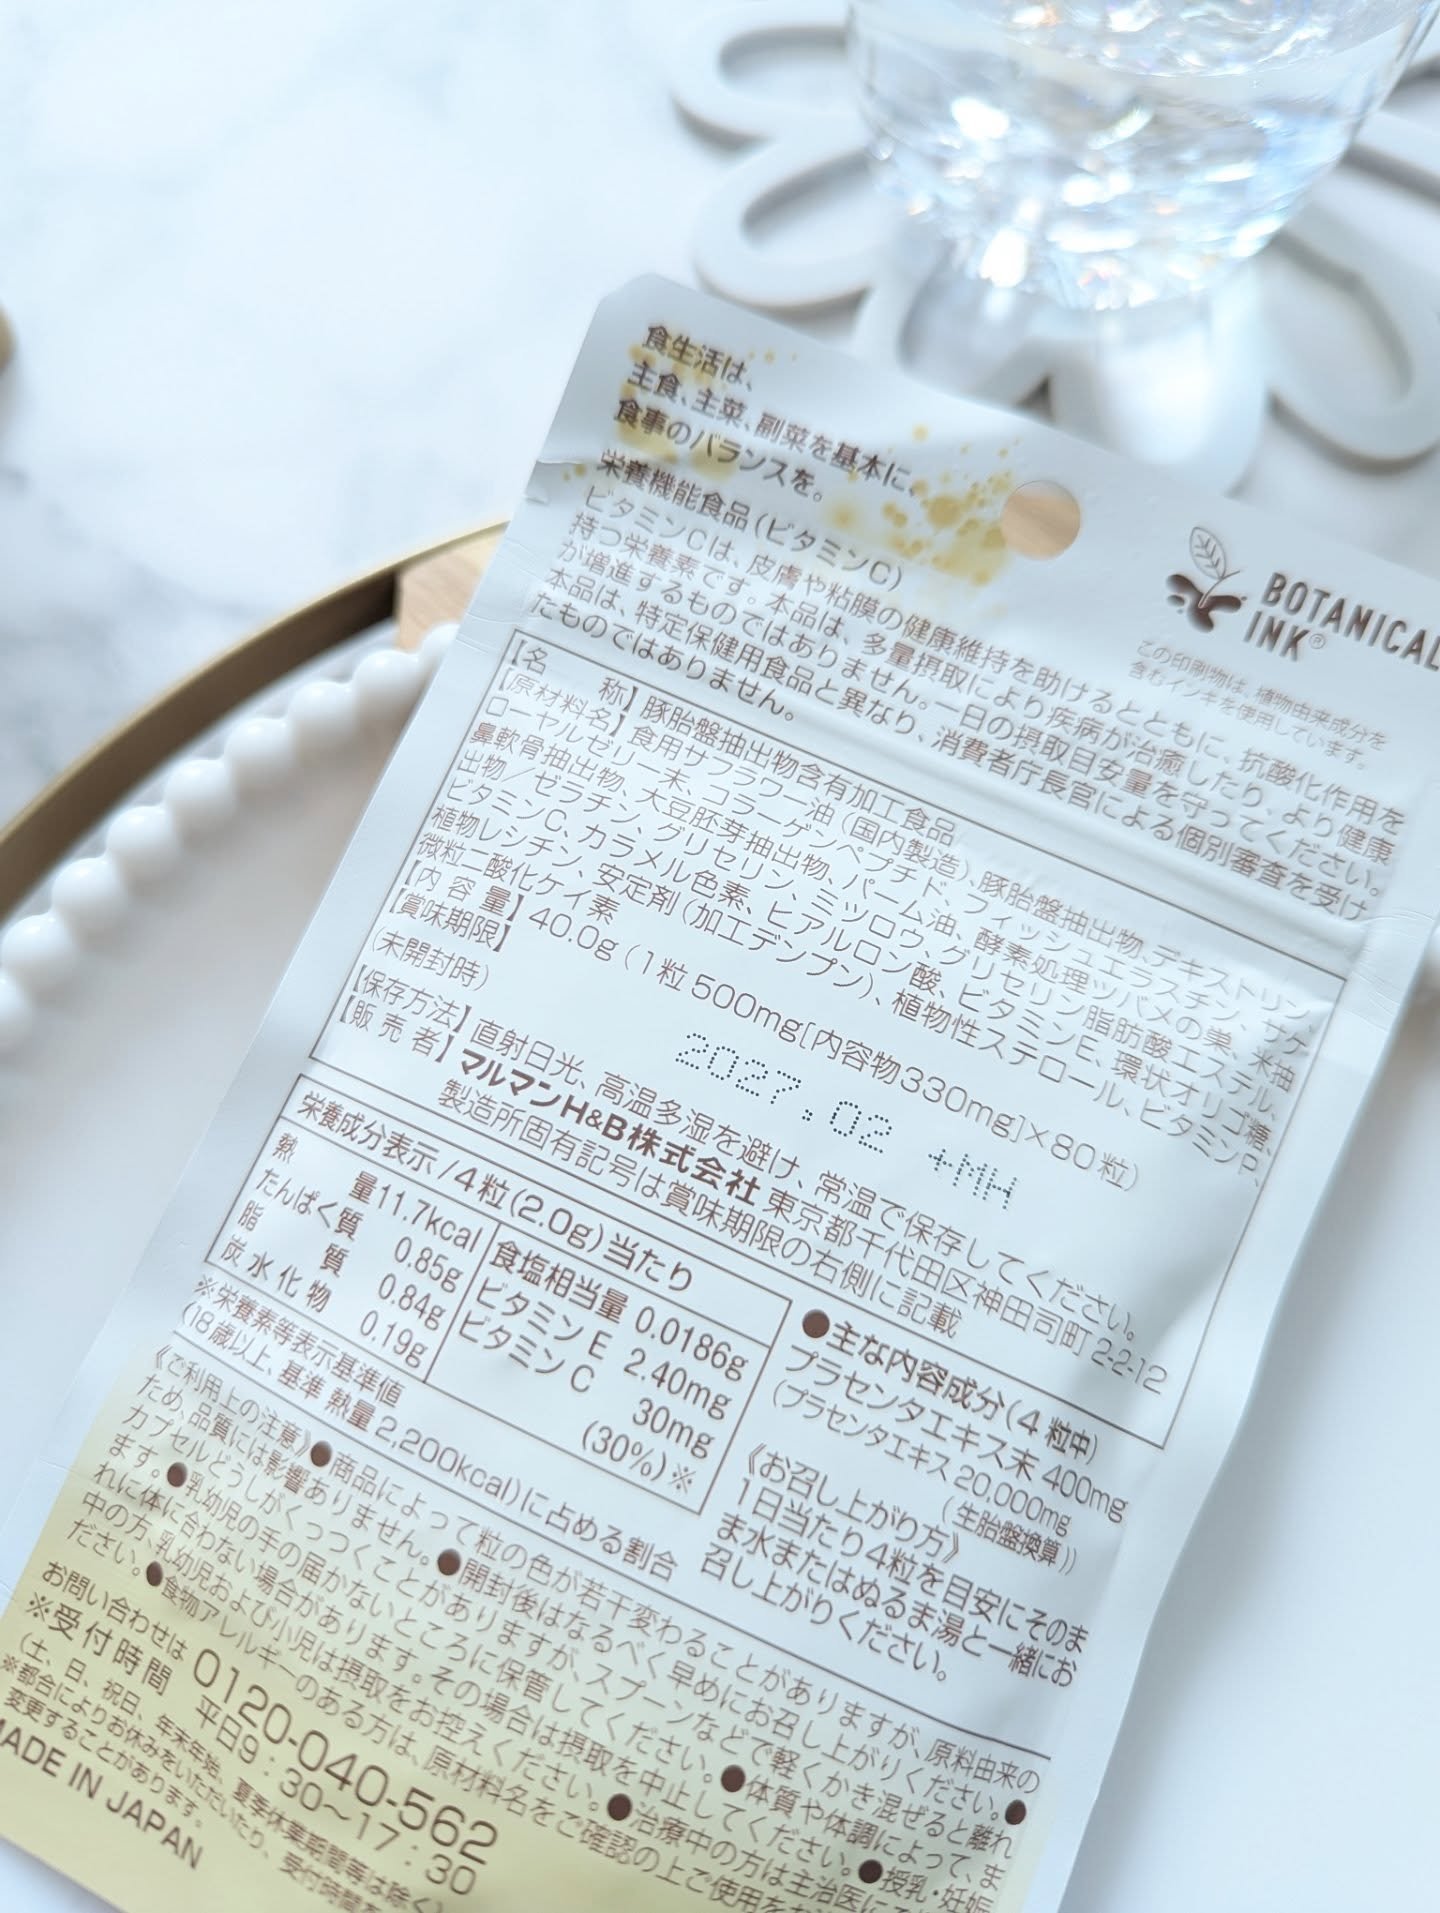 食生活は、
主食、主菜、副菜を基本に、
食事のバランスを。
栄養機能食品（ビタミンC）
ビタミンCは、皮膚や粘膜の健康維持を助けるとともに、抗酸化作用を
持つ栄養素です。本品は、多量摂取により疾病が治癒したり、より健康
が増進するものではありません。一日の摂取目安量を守ってください。
本品は、特定保健用食品と異なり、消費者庁長官による個別審査を受け
たものではありません。
BOTANICAL
INK®
この印刷物は、植物由来成分を
含むインキを使用しています。
【名 称】豚胎盤抽出物含有加工食品
【原材料名】食用サフラワー油（国内製造）、豚胎盤抽出物、デキストリン、
ローヤルゼリー末、コラーゲンペプチド、フィッシュエラスチン、サケ
鼻軟骨抽出物、大豆胚芽抽出物、パーム油、酵素処理ツバメの巣、米抽
出物／ゼラチン、グリセリン、ミツロウ、グリセリン脂肪酸エステル、
ビタミンC、カラメル色素、ヒアルロン酸、ビタミンE、環状オリゴ糖、
植物レシチン、安定剤（加工デンプン）、植物性ステロール、ビタミンP、
微粒二酸化ケイ素
【内 容 量】40.0g（1粒 500mg[内容物330mg]×80粒）
【賞味期限】
（未開封時） 2027.02 +MH
【保存方法】直射日光、高温多湿を避け、常温で保存してください。
【販 売 者】マルマンH&B株式会社 東京都千代田区神田司町 2-2-12
製造所固有記号は賞味期限の右側に記載
栄養成分表示/4粒(2.0g)当たり
熱 量 11.7kcal
たんぱく質 0.85g
脂 質 0.84g
炭水化物 0.19g
食塩相当量 0.0186g
ビタミン E 2.40mg
ビタミン C 30mg
(30%)※
※栄養素等表示基準値
(18歳以上、基準 熱量 2,200kcal)に占める割合
●主な内容成分(4粒中)
プラセンタエキス末 400mg
(プラセンタエキス 20,000mg
(生胎盤換算))
《お召し上がり方》
1日当たり4粒を目安にそのま
ま水またはぬるま湯と一緒にお
召し上がりください。
《ご利用上の注意》●商品によって粒の色が若干変わることがありますが、原料由来の
ため、品質には影響ありません。●開封後はなるべく早めにお召し上がりください。●
カプセルどうしがくっつくことがありますが、スプーンなどで軽くかき混ぜると離れ
ます。●乳幼児の手の届かないところに保管してください。●体質や体調によって、ま
れに体に合わない場合があります。その場合は摂取を中止してください。●授乳・妊娠
中の方、乳幼児および小児は摂取をお控えください。●治療中の方は主治医に
ださい。●食物アレルギーのある方は、原材料名をご確認の上ご使用を
お問い合わせは 0120-040-562
※受付時間 平日9：30〜17：30
（土、日、祝日、年末年始、夏季休業期間等は除く）
※都合によりお休みをいただいたり、受付時間を
変更することがあります。
MADE IN JAPAN